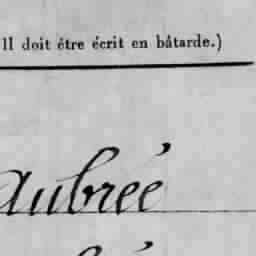 Il doit être écrit en bâtarde.)
Aubréé